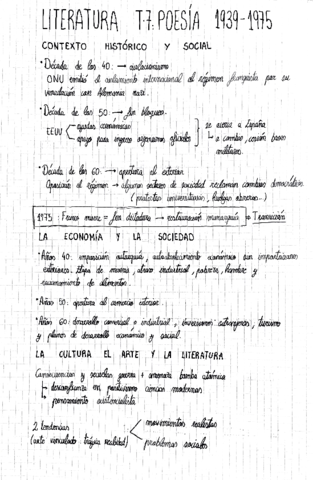 LITERATURA T.7: POESÍA 1939-1975
CONTEXTO HISTÓRICO Y SOCIAL
· Década de los 40: → aislacionismo
ONU emitió el aislamiento internacional al régimen franquista por su
vinculación con Alemania nazi.
· Década de los 50: → fin bloqueo.
EEUU ayudas económicas se acerca a España
apoyo para ingreso organismos oficiales a cambio, cesión bases
militares.
· Década de los 60: → apertura al exterior
Oposición al régimen → algunos sectores de sociedad reclaman cambios democráticos
(protestas universitarias, huelgas obreras...)
1975: Franco muere = fin dictadura → restauración monarquía → Transición
LA ECONOMÍA Y LA SOCIEDAD
· Años 40: autarquía, económico sin importaciones
exteriores. Etapa de miseria, industrial, pobreza, hambre y
racionamiento de alimentos.
· Años 50: apertura al comercio exterior.
· Años 60: desarrollo comercial e industrial, inversiones extranjeras, turismo
y planes de desarrollo económico y social.
LA CULTURA EL ARTE Y LA LITERATURA
Consecuencias y secuelas guerra + amenaza bomba atómica
desconfianza en ciencias modernas
pensamiento existencialista
2 tendencias movimientos realistas
(arte vinculado trágica realidad) problemas sociales